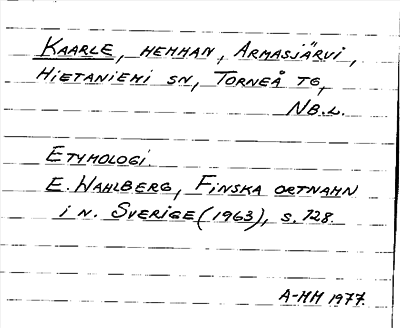 KAARLE, HEMMAN, ARMASJÄRVI,
HIETANIEMI SN, TORNEÅ TG,
NB.L.
ETYMOLOGI.
E. WAHLBERG, FINSKA ORTNAMN
i N. SVERIGE (1963), s. 128.
A-HH 1977.